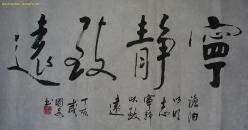 寧靜致遠
澹泊
以明
志
寧靜
以致
遠
丁亥